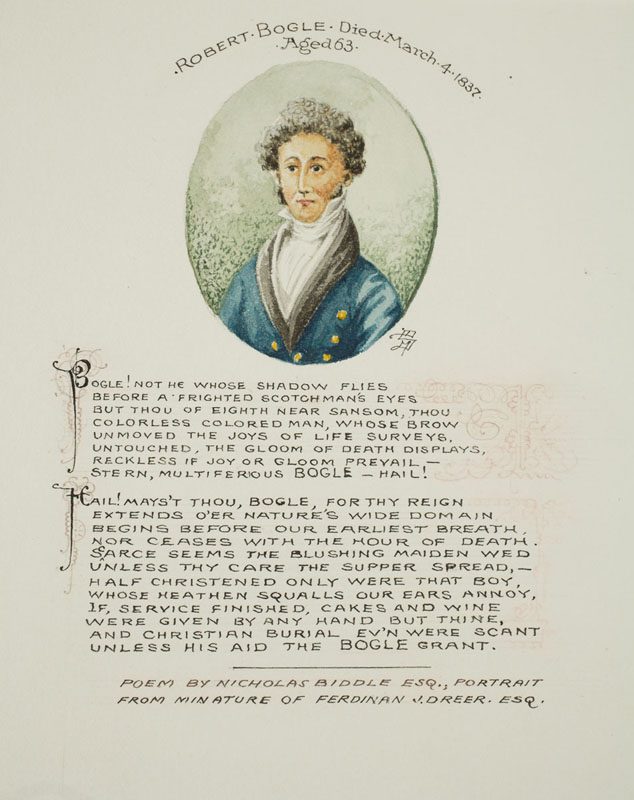 .ROBERT·BOGLE·Died·March·4·1837.
·Aged 63·
BOGLE! NOT HE WHOSE SHADOW FLIES
BEFORE A FRIGHTED SCOTCHMAN'S EYES
BUT THOU OF EIGHTH NEAR SANSOM, THOU
COLORLESS COLORED MAN, WHOSE BROW
UNMOVED THE JOYS OF LIFE SURVEYS,
UNTOUCHED, THE GLOOM OF DEATH DISPLAYS,
RECKLESS IF JOY OR GLOOM PREVAIL —
STERN, MULTIFERIOUS BOGLE — HAIL!
HAIL! MAYS'T THOU, BOGLE, FOR THY REIGN
EXTENDS O'ER NATURE'S WIDE DOMAIN
BEGINS BEFORE OUR EARLIEST BREATH,
NOR CEASES WITH THE HOUR OF DEATH.
SCARCE SEEMS THE BLUSHING MAIDEN WED
UNLESS THY CARE THE SUPPER SPREAD,—
HALF CHRISTENED ONLY WERE THAT BOY,
WHOSE HEATHEN SQUALLS OUR EARS ANNOY,
IF, SERVICE FINISHED, CAKES AND WINE
WERE GIVEN BY ANY HAND BUT THINE,
AND CHRISTIAN BURIAL EV'N WERE SCANT
UNLESS HIS AID THE BOGLE GRANT.
POEM BY NICHOLAS BIDDLE ESQ., PORTRAIT
FROM MINATURE OF FERDINAN J. DREER. ESQ.